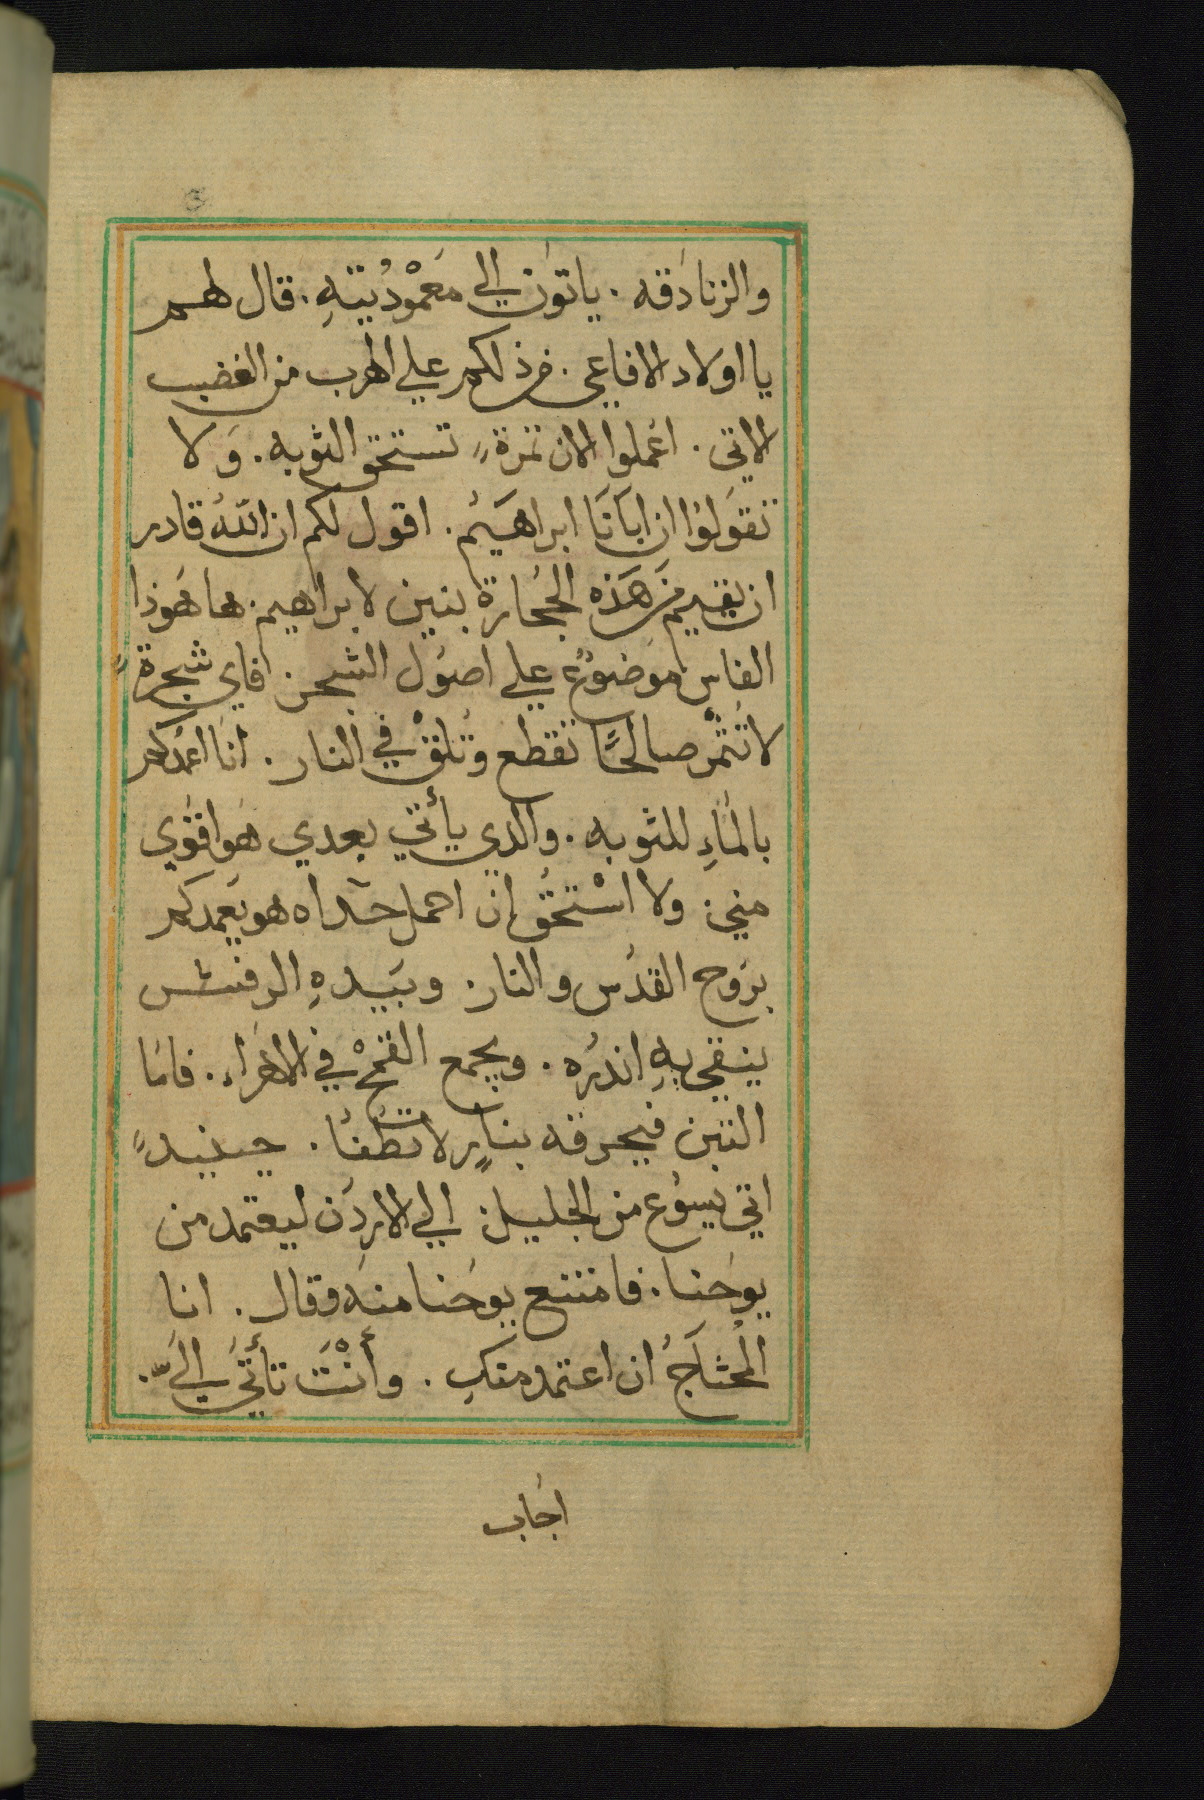 والزنادَقه . ياتون الي مَعَمْوُديتهِ . قال لهم
يا اولاد الافاعي . من ذلكم علي الهرب من الغضب
الاتي . اعملوا الان ثمرةً تستحق التوبه . وَلا
تقولوا ان ابَانَا ابراهيم . اقول لكم ان اللهُ قادر
ان يقيم من هَذه الحجارة بنين لابراهيم . ها هَوذا
الفاس موضوعُ علي اصوُل الشجر . فاي شجرةً
لا تُثمْر صالحًا تقطع وتُلقْ في النار . انا اعمدكم
بالماءِ للتوبه . والدي يأتي بعدي هَو اقوي
مني . ولا اسْتحقُ ان احمل حداه هو يعَمدكم
بروح القدَس والنار . وبيَدهِ الرفش
ينقي بهِ اندرُه . ويجمع القمحْ في الاهَراء . فامَا
التبن فيحرقه بنارٍ لا تطُفا . حينيدً
اتي يسوُع من الجليل . الي الاردن ليعتمد من
يوحَنا . فامتنع يوحَنا منه وقال . انا
المحُتاَجُ ان اعتمد منكِ . وأنْتَ تأتي اليَّ .
اجاب